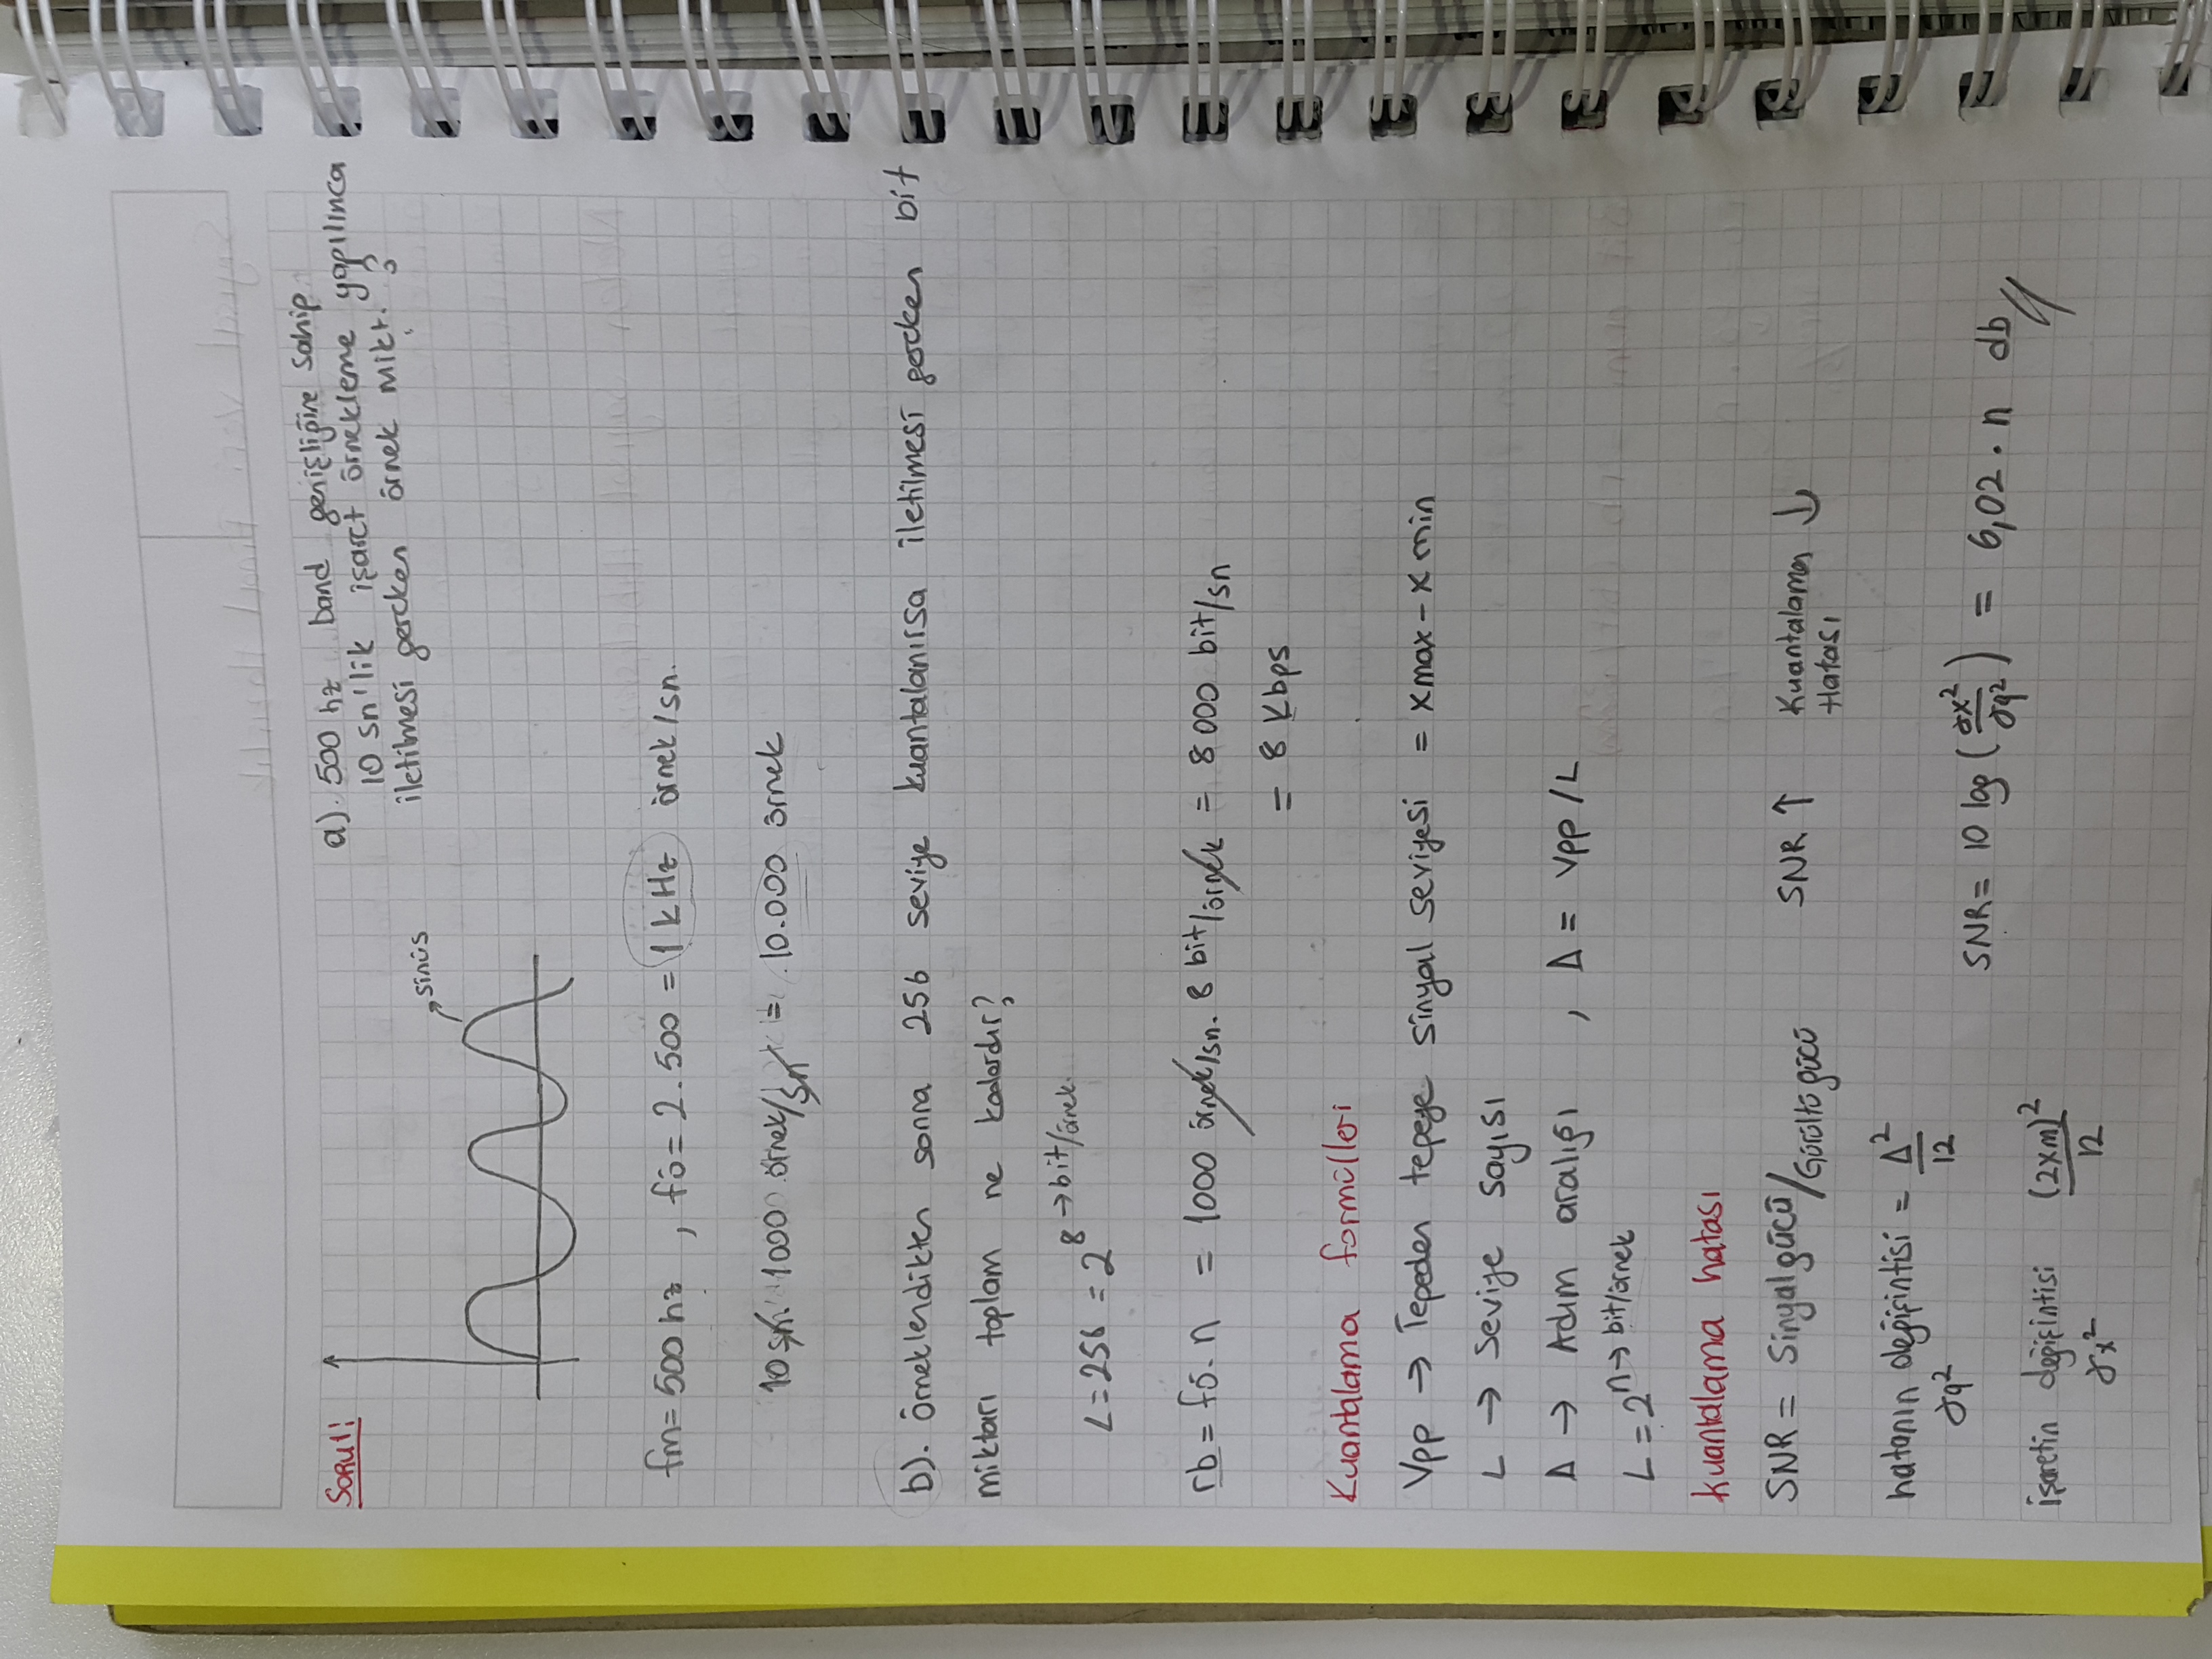 SORU1:
a). 500 hz band genişliğine sahip
10 sn'lik işaret örnekleme yapılınca
iletilmesi gereken örnek mikt. ?
sinüs
fm= 500 hz , fö= 2.500 = 1 kHz örnek/sn.
10 sn. 1000 örnek/sn = 10.000 örnek
b). örneklendikten sonra 256 seviye kuantalanırsa iletilmesi gereken bit
miktarı toplam ne kadardır?
L=256 = 2^8 → bit/örnek.
rb = fö. n = 1000 örnek/sn. 8 bit/örnek = 8000 bit/sn
= 8 Kbps
Kuantalama formülleri
Vpp → Tepeden tepeye sinyal seviyesi = xmax - x min
L → Seviye sayısı
Δ → Adım aralığı , Δ = Vpp / L
L = 2^n → bit/örnek
Kuantalama hatası
SNR = Sinyal gücü/Gürültü gücü SNR ↑ Kuantalama Hatası ↓
hatanın değişintisi = Δ²/12
σq²
SNR = 10 log (σx²/σq²) = 6,02 . n db
işaretin değişintisi (2xm)²/12
σx²